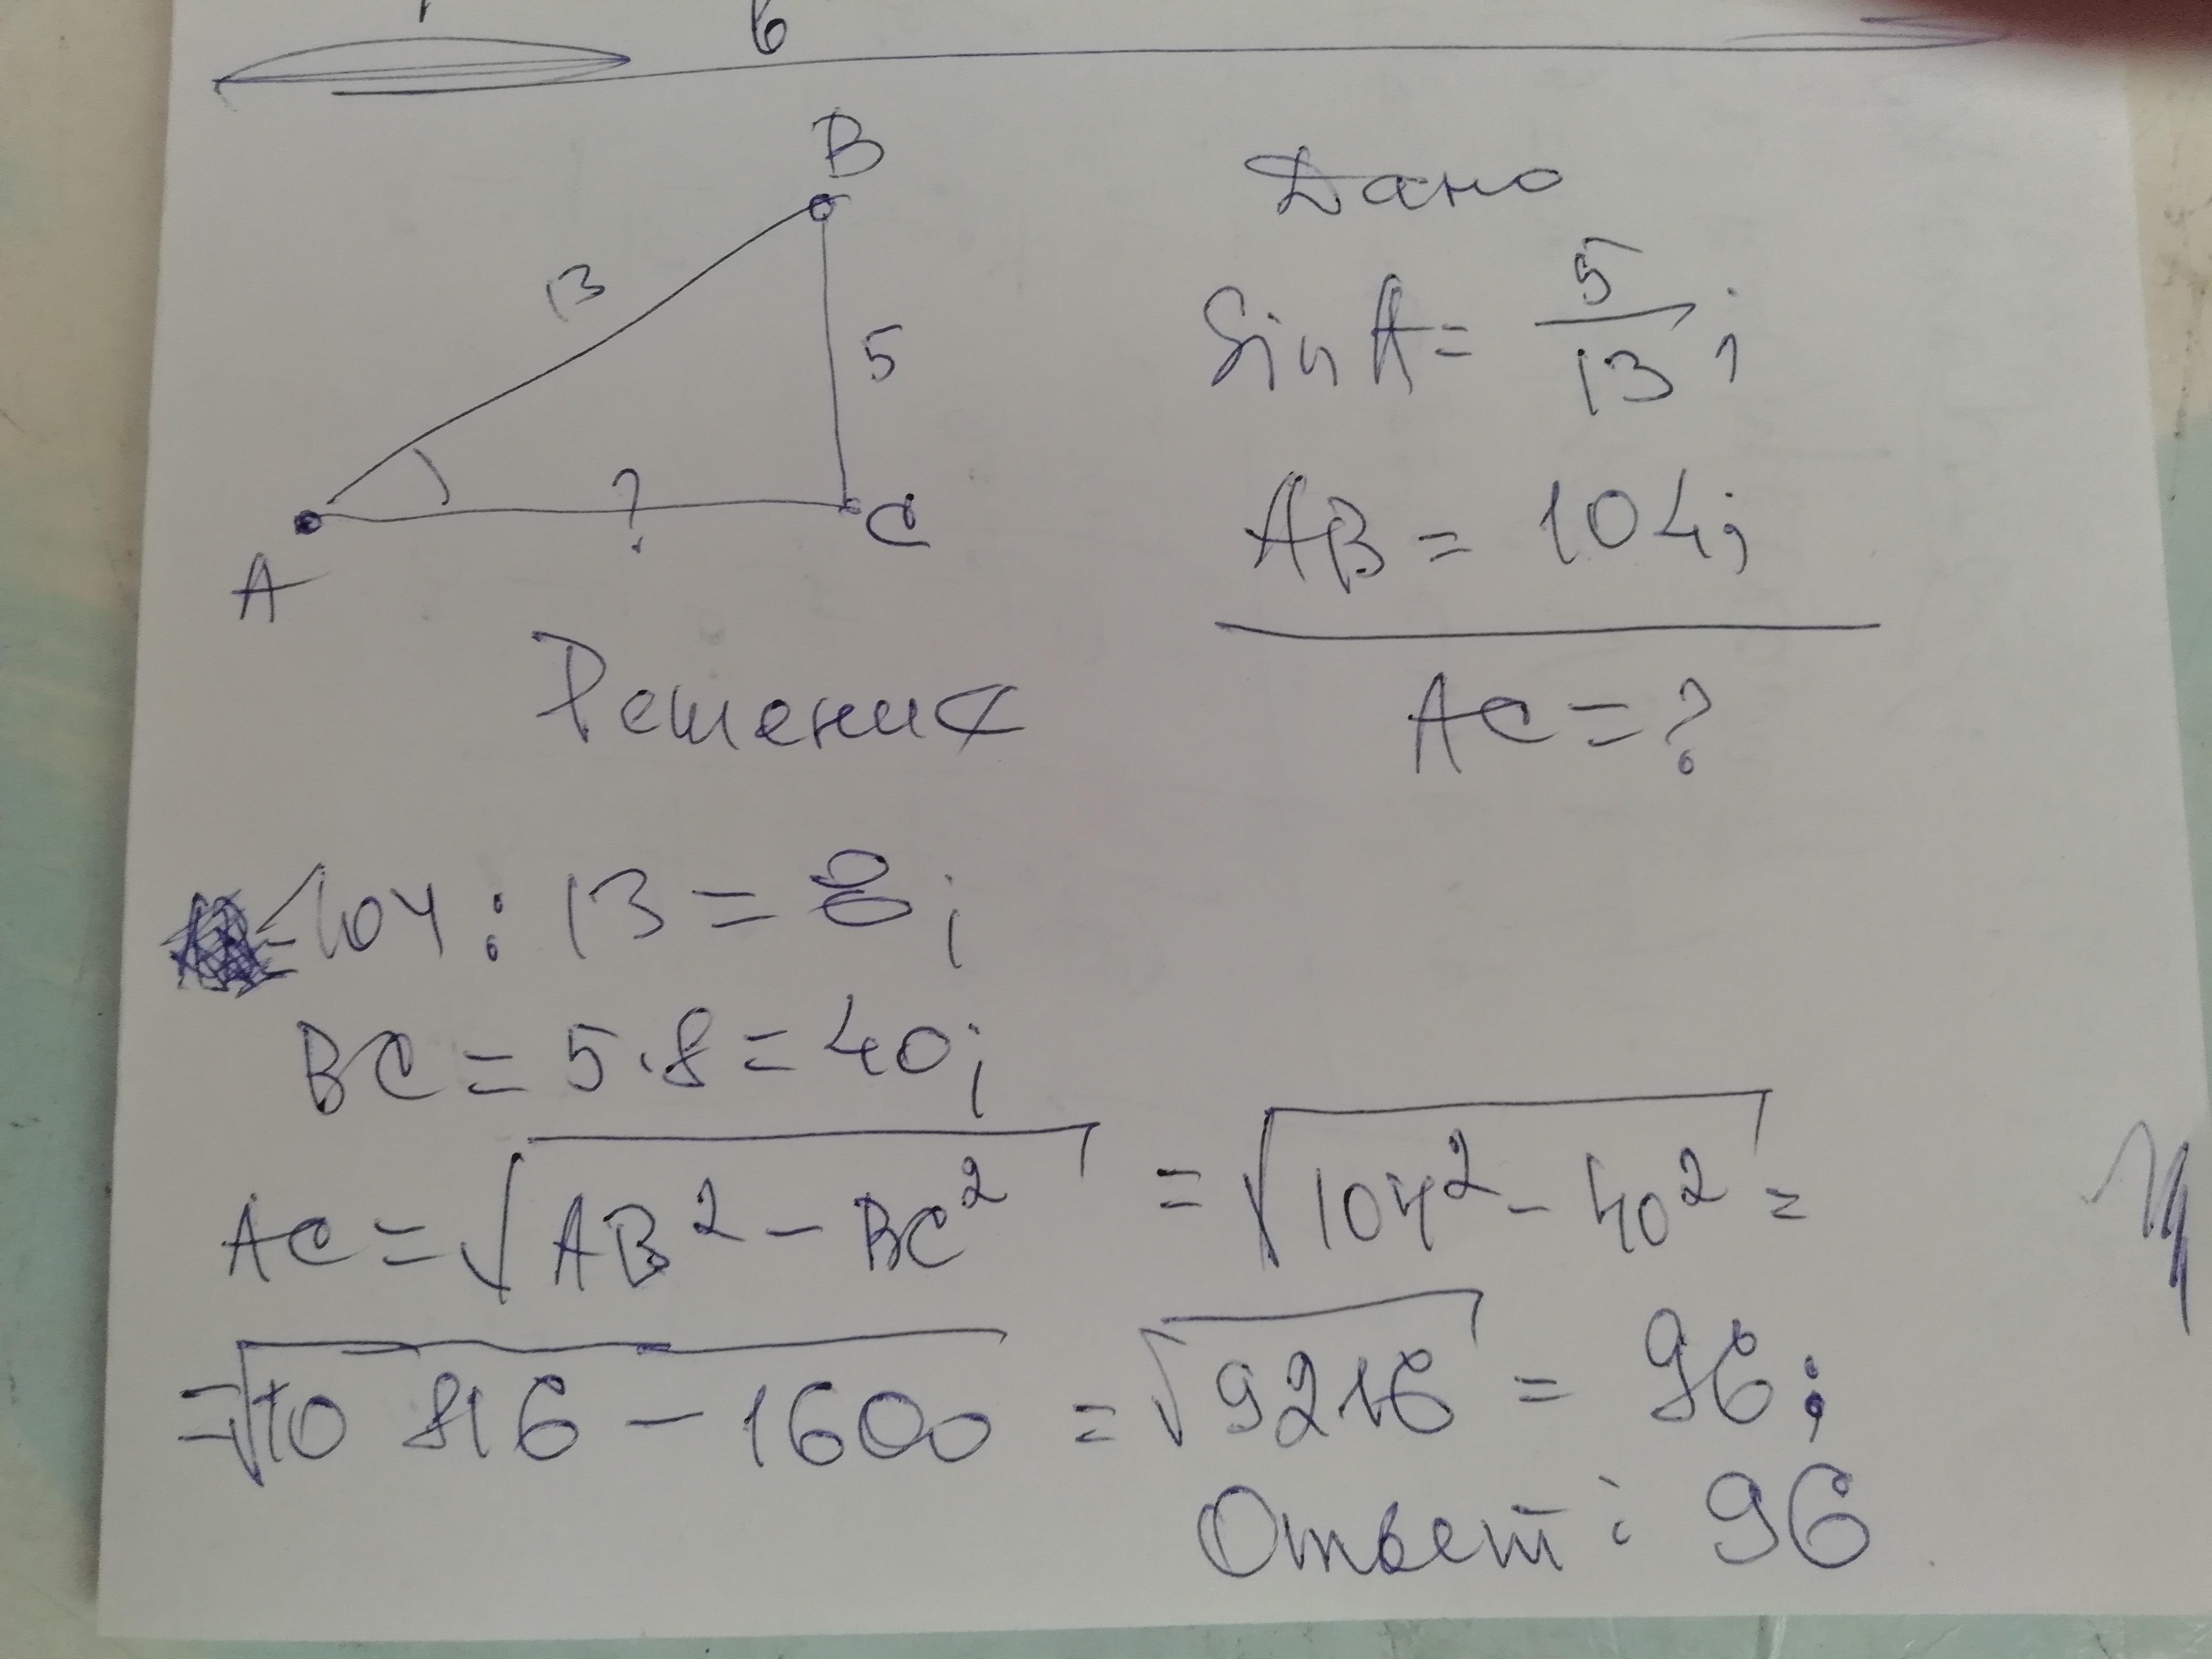 6
B
13
5
?
A
C
Дано
Sin A = 5/13;
AB = 104;
AC = ?
Решения
104 : 13 = 8;
BC = 5·8 = 40;
AC = √(AB² − BC²) = √(104² − 40²) =
= √(10 816 − 1600) = √9216 = 96;
Ответ: 96